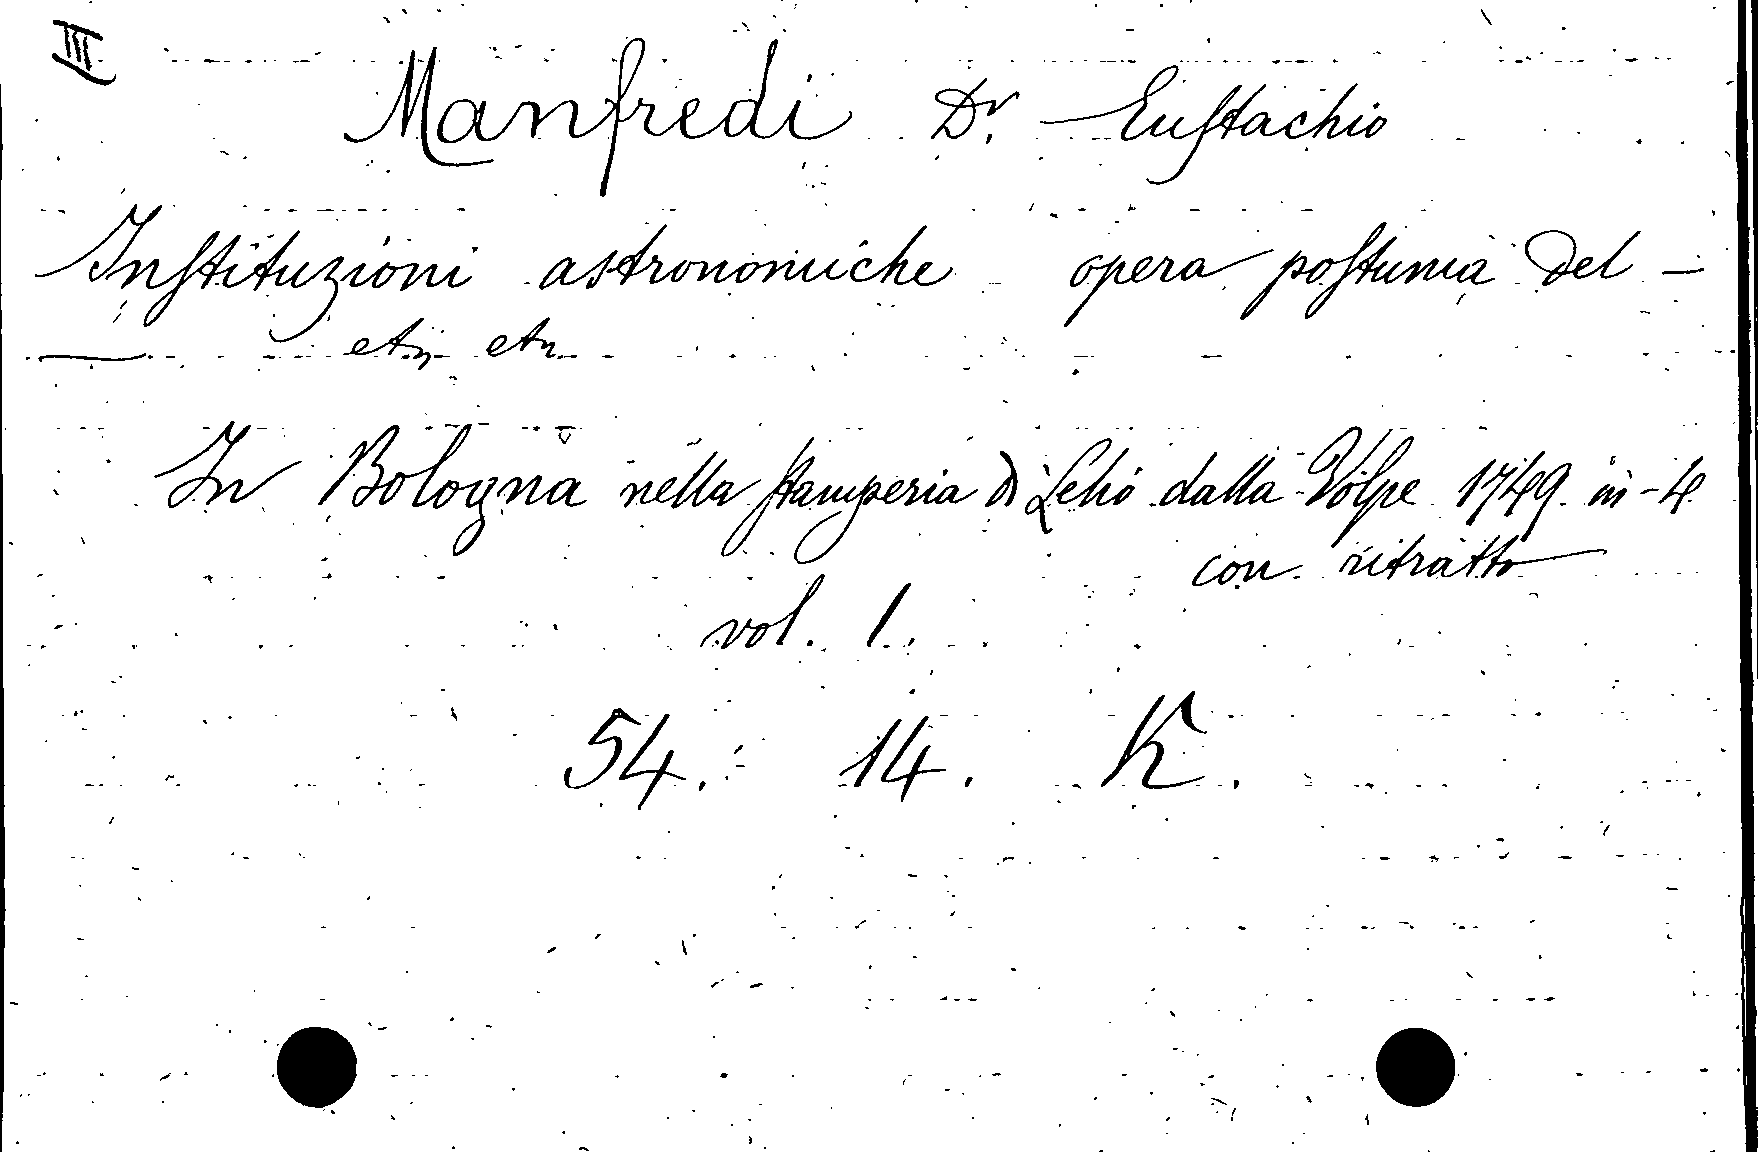 III
Manfredi Dr. Eustachio
Instituzioni astronomiche opera postuma del —
— etc etc
In Bologna nella stamperia di Lelio dalla Volpe 1749 in-4
con ritratto
vol. 1.
54. 14. K.